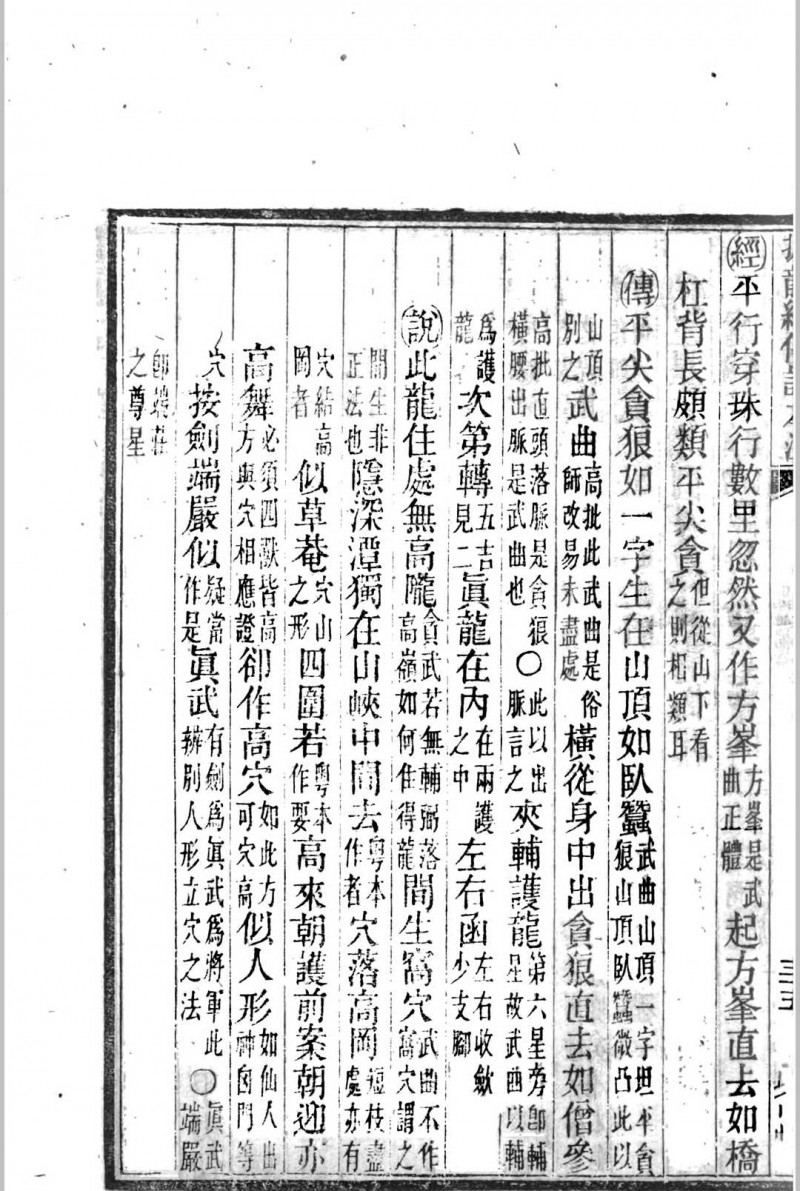 經平行穿珠行數里忽然又作方峯方峯是武曲正體起方峯直去如橋
杠背長頗類平尖貪但從山下看之則相類耳
傳平尖貪狼如一字生在山頂如臥蠶武曲山頂一字坦平貪狼山頂臥蠶微凸此以
山頂別之武曲高批此武曲是俗師改易未盡處橫從身中出貪狼直去如僧參
高批直頭落脈是貪狼橫腰出脈是武曲也○此以出脈言之夾輔護龍第六星旁卽輔星故武曲以輔
爲護龍次第轉見五吉二眞龍在內在兩護之中左右函左右收歛少支腳
說此龍住處無高隴貪武若無輔弼落高嶺如何住得龍間生窩穴武曲不作窩穴謂之
間生非正法也隱深潭獨在山峽中間去粵本作者穴落高岡短枝盡處亦有
穴結高岡者似草菴穴山之形四圍若粵本作要高來朝護前案朝迎亦
高舞必須四獸皆高方與穴相應證卻作高穴如此方可穴高似人形如仙人出神囟門等
穴按劍端嚴似疑當作是眞武有劍爲眞武爲將軍此辨別人形立穴之法○眞武端嚴
卽端莊之尊星